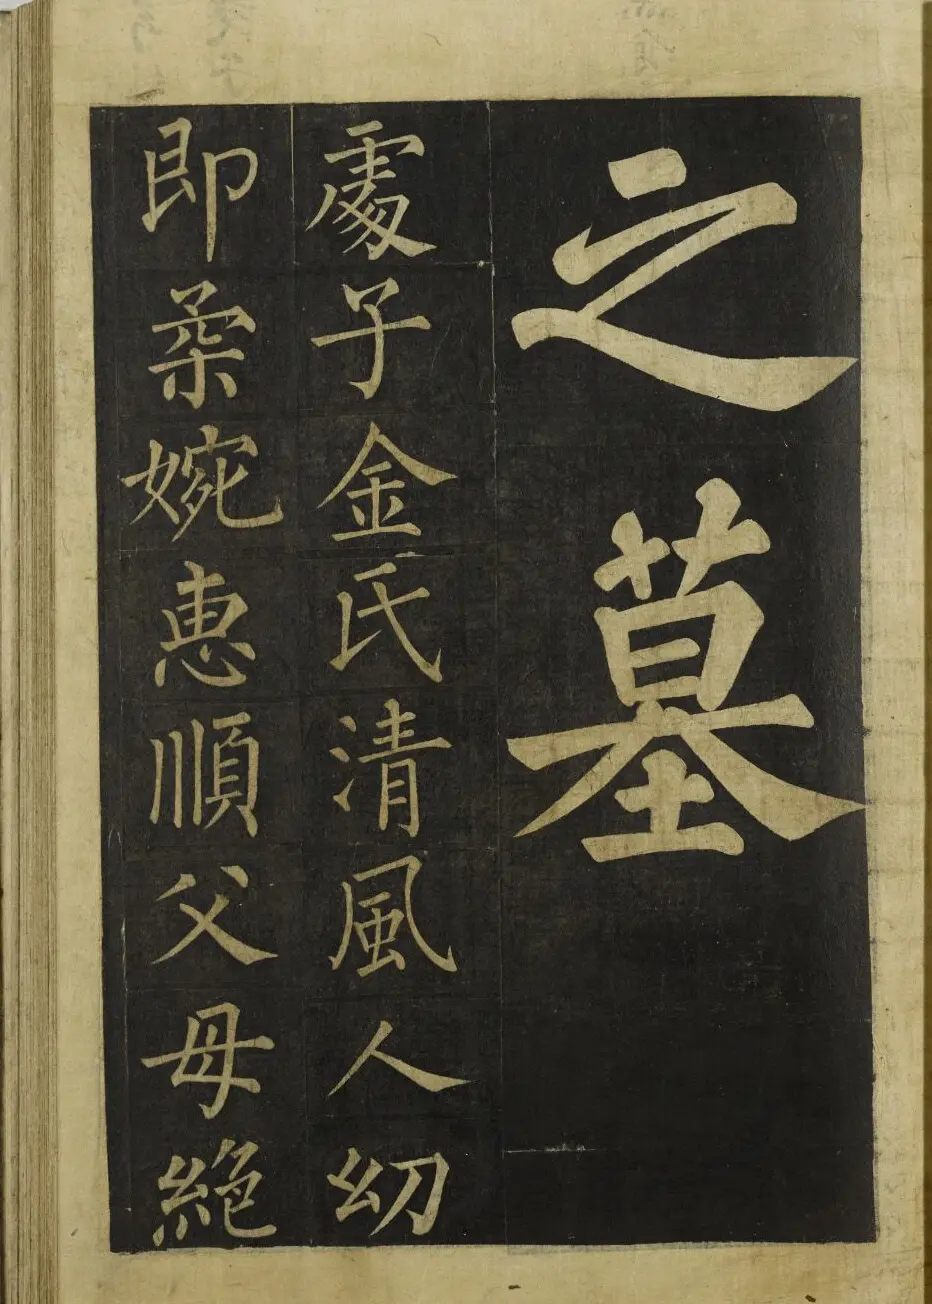 之墓
處子金氏清風人幼
即柔婉惠順父母絶